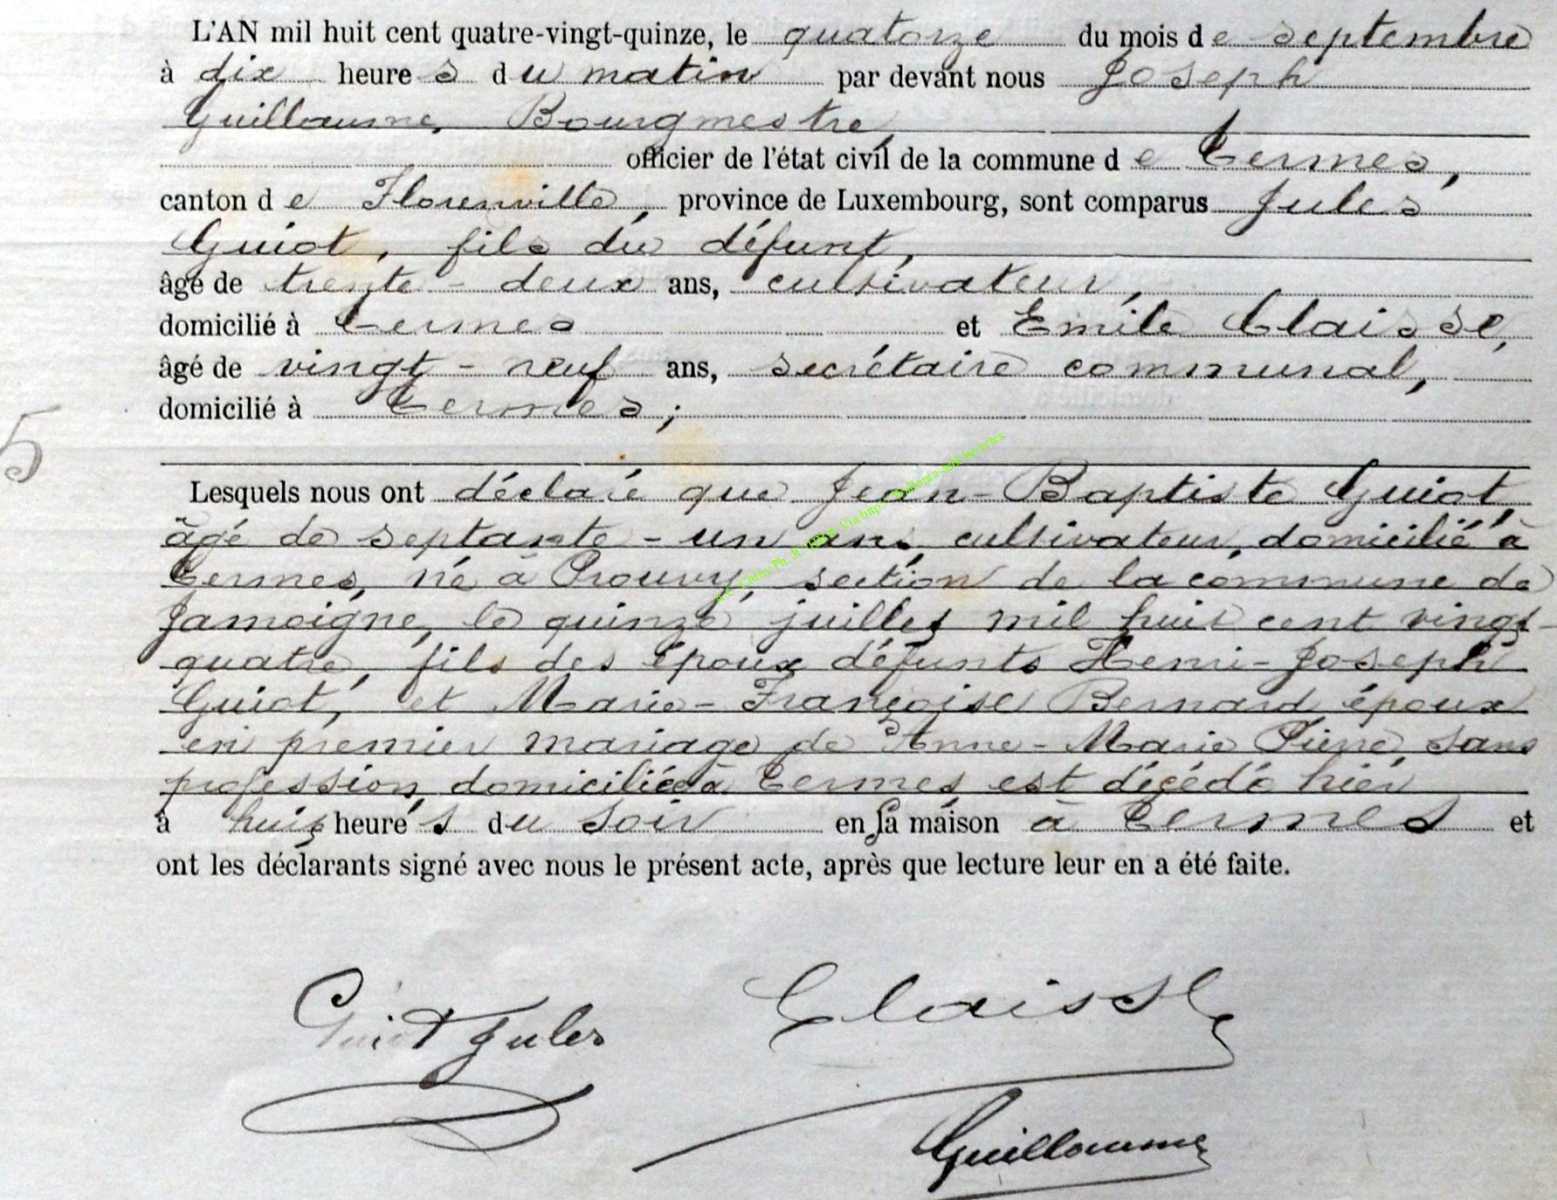 L'AN mil huit cent quatre-vingt-quinze, le quatorze du mois de septembre
à dix heures du matin par devant nous Joseph
Guillaume, Bourgmestre,
officier de l'état civil de la commune de Termes,
canton de Florenville, province de Luxembourg, sont comparus Jules
Guiot, fils du défunt,
âgé de trente-deux ans, cultivateur,
domicilié à Termes et Emile Claisse,
âgé de vingt-neuf ans, secrétaire communal,
domicilié à Termes;
5
Lesquels nous ont déclaré que Jean-Baptiste Guiot,
âgé de septante-un ans, cultivateur, domicilié à
Termes, né à Prouvy, section de la commune de
Jamoigne, le quinze juillet mil huit cent vingt-
quatre, fils des époux défunts Henri-Joseph
Guiot, et Marie-Françoise Bernard époux
en premier mariage de Anne-Marie Pierre, sans
profession, domiciliée à Termes est décédé hier
à huit heures du soir en sa maison à Termes et
ont les déclarants signé avec nous le présent acte, après que lecture leur en a été faite.
Guiot Jules Claisse
Guillaume